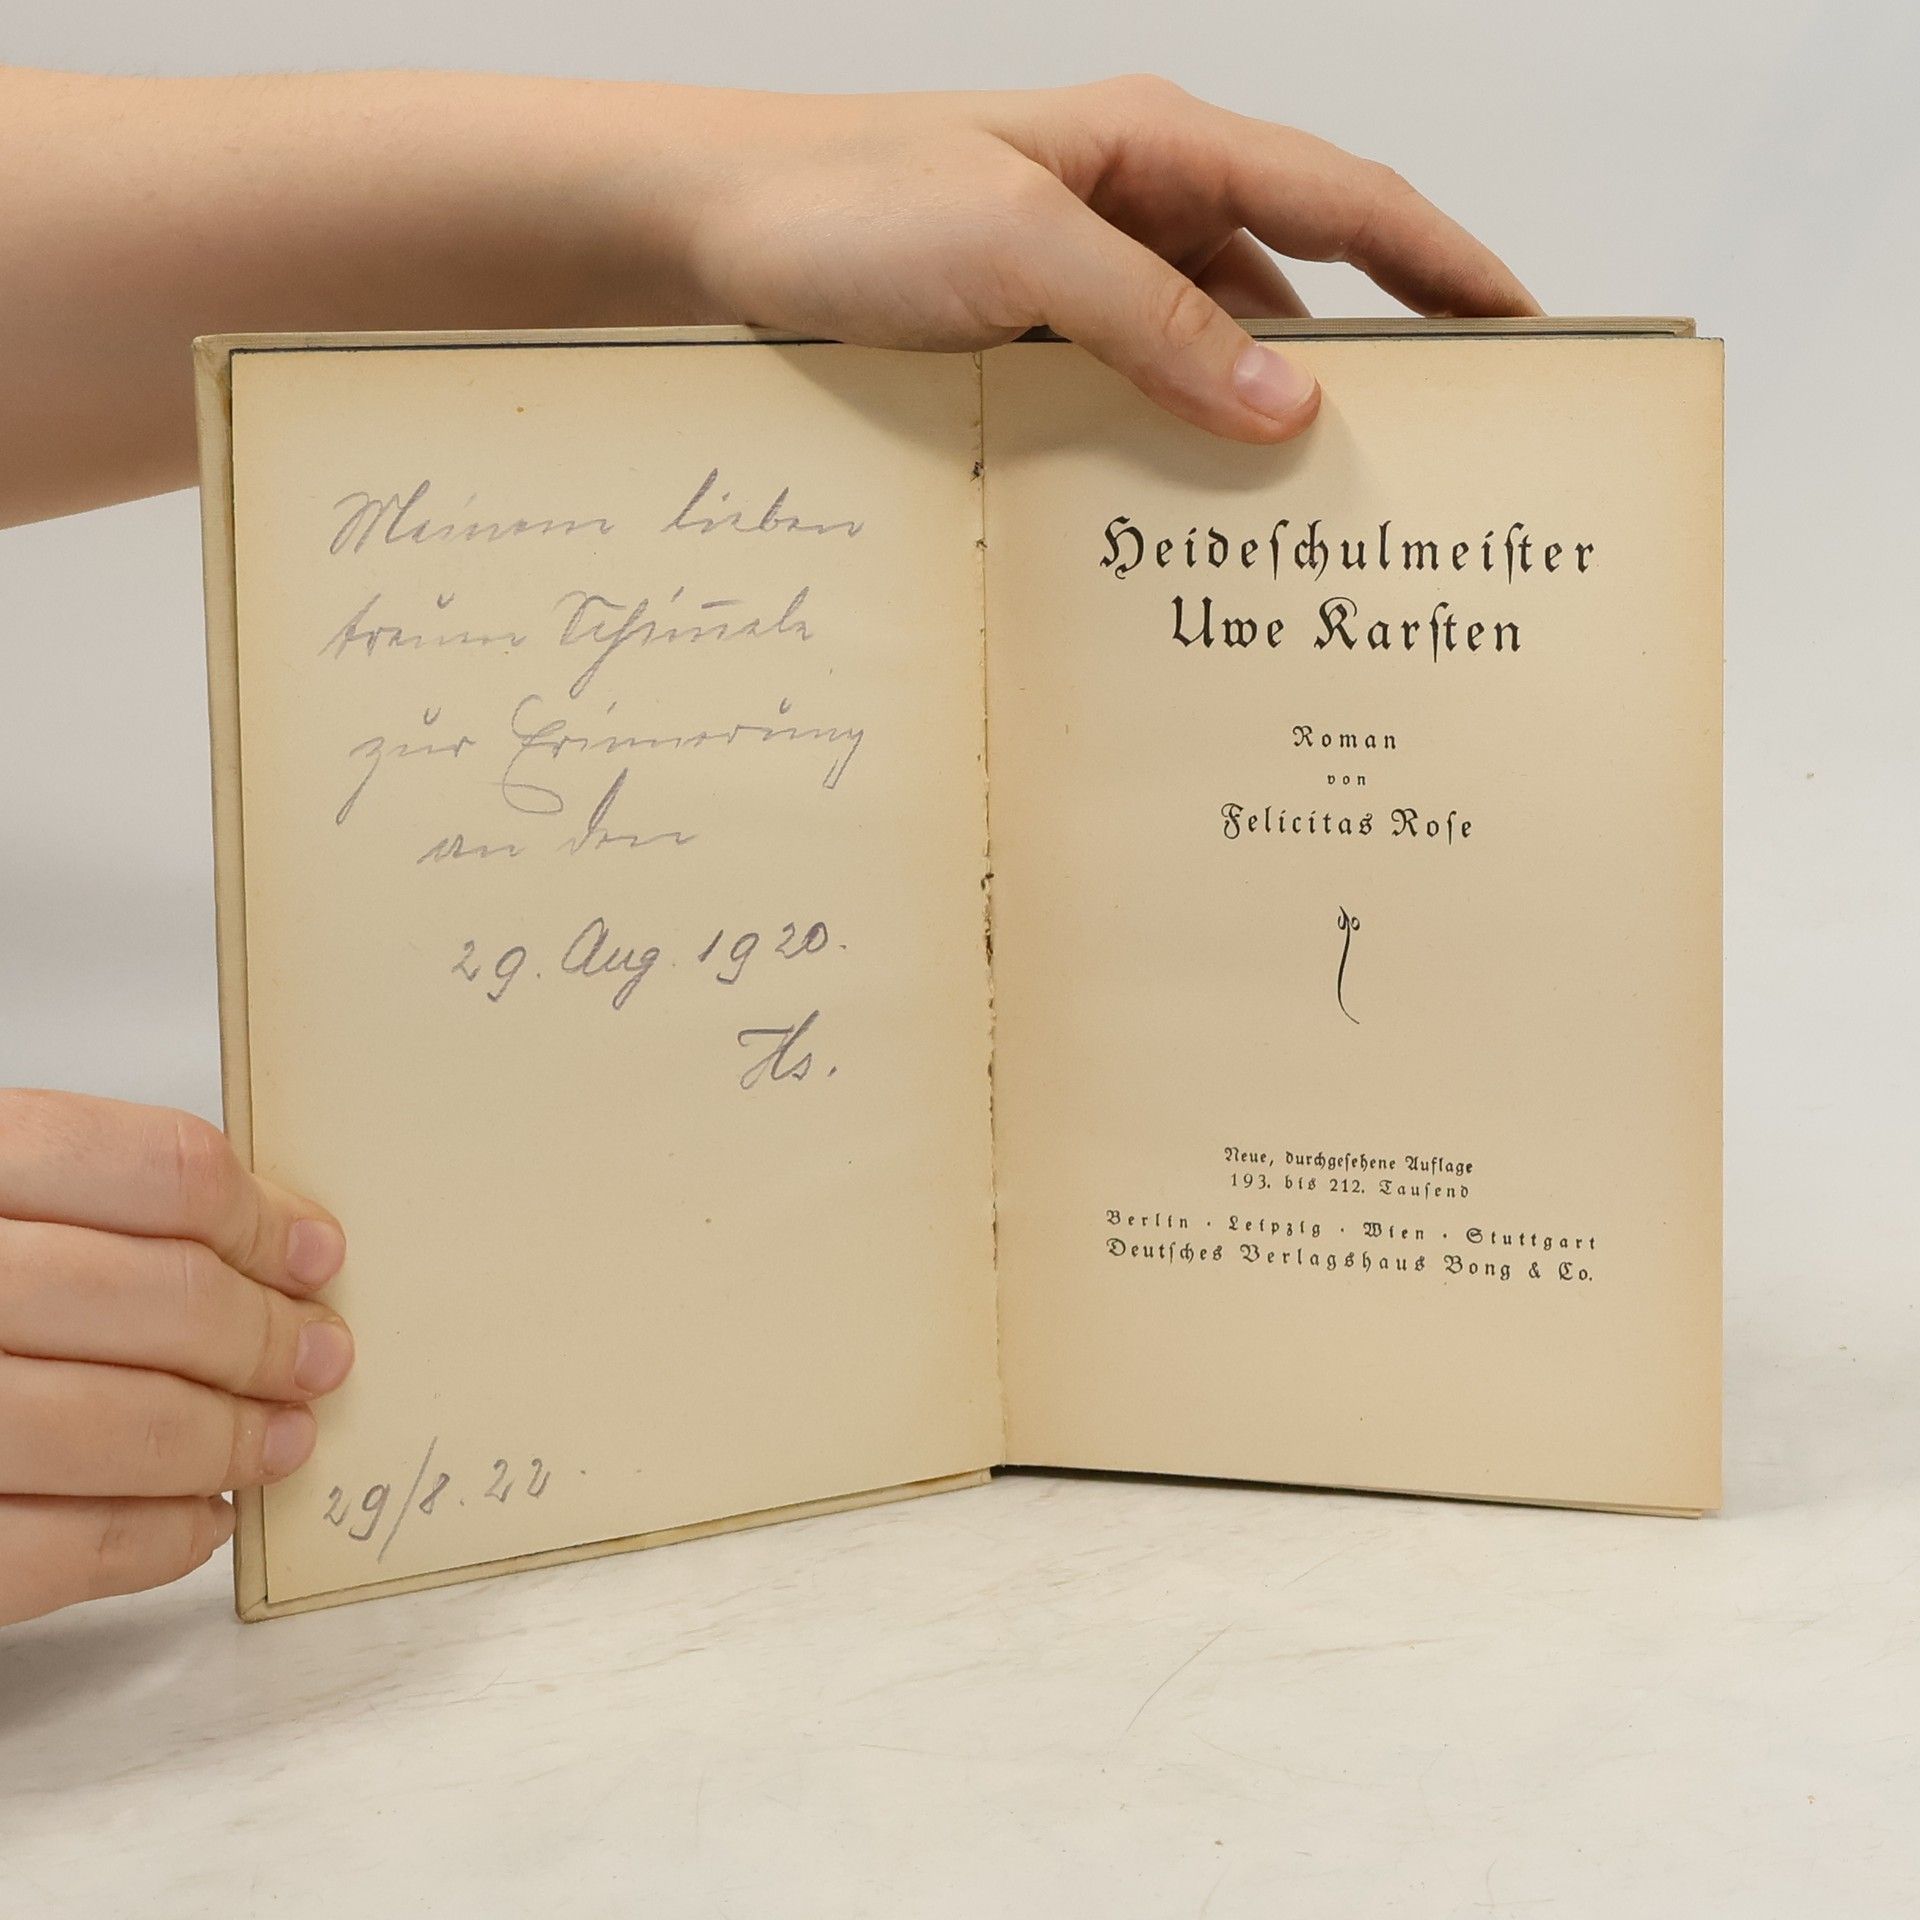 Meinem lieben
treuen
zur Erinnerung
an den
29. Aug. 1920.
Hs.
29/8. 22.
Heideſchulmeiſter
Uwe Karſten
Roman
von
Felicitas Roſe
Neue, durchgeſehene Auflage
193. bis 212. Tauſend
Berlin · Leipzig · Wien · Stuttgart
Deutſches Verlagshaus Bong & Co.